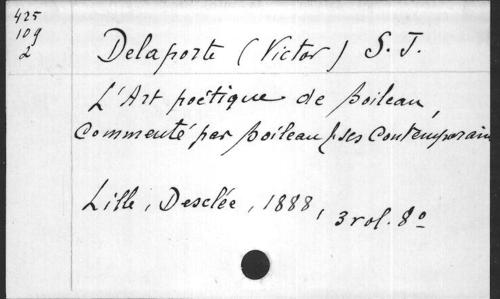 425
109
2
Delaporte (Victor) S. J.
L'Art poëtique de Boileau,
Commenté par Boileau & ses Contemporains
Lille, Desclée, 1888, 3 vol. 8º